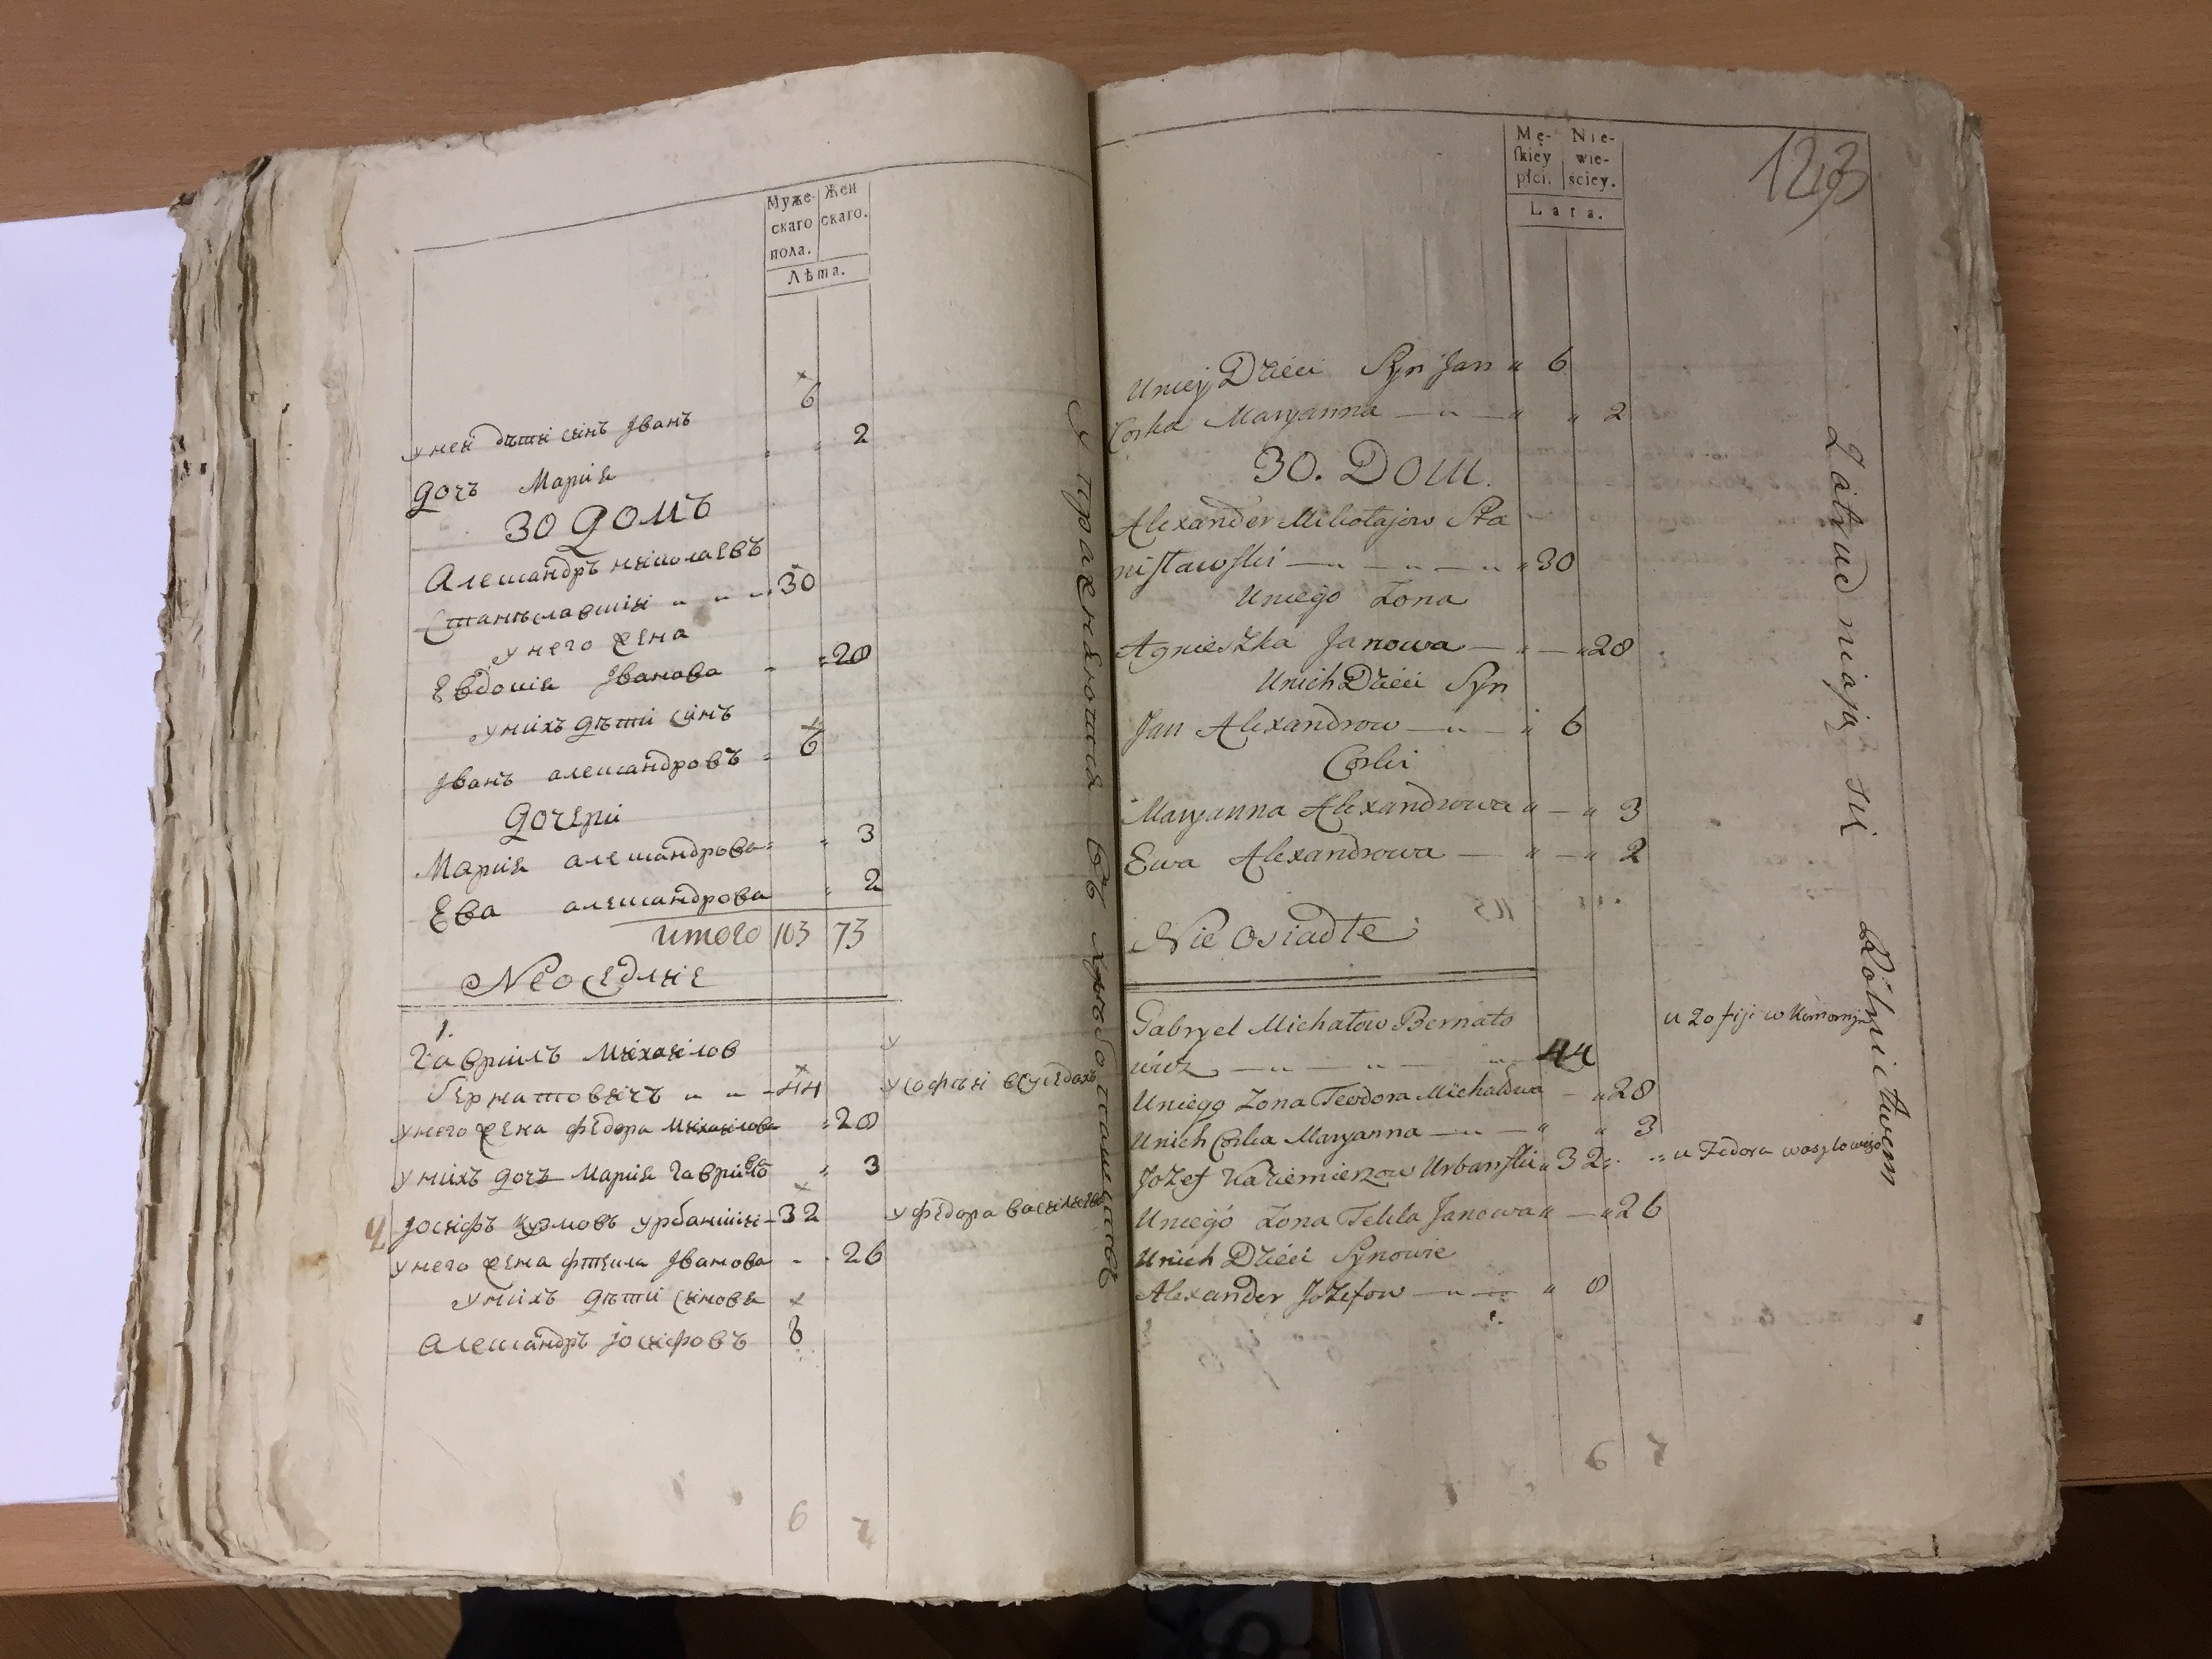 Муже-
скаго
пола.
Жен
скаго.
Лѣта.
у неи дѣти синъ Іванъ 6
дочъ Мария 2
30 домъ
Александръ николаевъ
Станиславский 30
у него жена
Евдокия Іванова 28
у нихъ дѣти синъ
Іванъ александровъ 6
дочери
Мария александрова 3
Ева александрова 2
итого 103 73
Неоседлие
1.
Гаврилъ михаилов
бернатовичъ 44
у него жена федора михаилова 28
у нихъ дочъ Мария Гаврилова 3
2 Іосифъ кузмовъ урбанский 32 у федора василиева
у него жена фтекла Іванова 26
у нихъ дѣти синовя
александръ іосифовъ 8
6 7
у пражняются въ хлѣбопашствѣ
Mę-
skiey
płci.
Nie-
wie-
sciey.
Lata.
123
Uniey Dzieci Syn Jan 6
Corka Maryanna 2
30. Dom.
Alexander Mikołajow Sta
nisławski 30
Uniego Zona
Agnieszka Janowa 28
Unich Dzieci Syn
Jan Alexandrow 6
Corki
Maryanna Alexandrowa 3
Ewa Alexandrowa 2
Nie Osiadłe
Gabryel Michałow Bernato
wicz 44
Uniego Zona Teodora Michałowa 28
Unich Corka Maryanna 3
Jozef Kaziemierzow Urbanski 32 u Fedora
Uniego Zona Tekla Janowa 26
Unich Dzieci Synowie
Alexander Jozefow 8
6 7
Zatrudniają się Rólnictwem